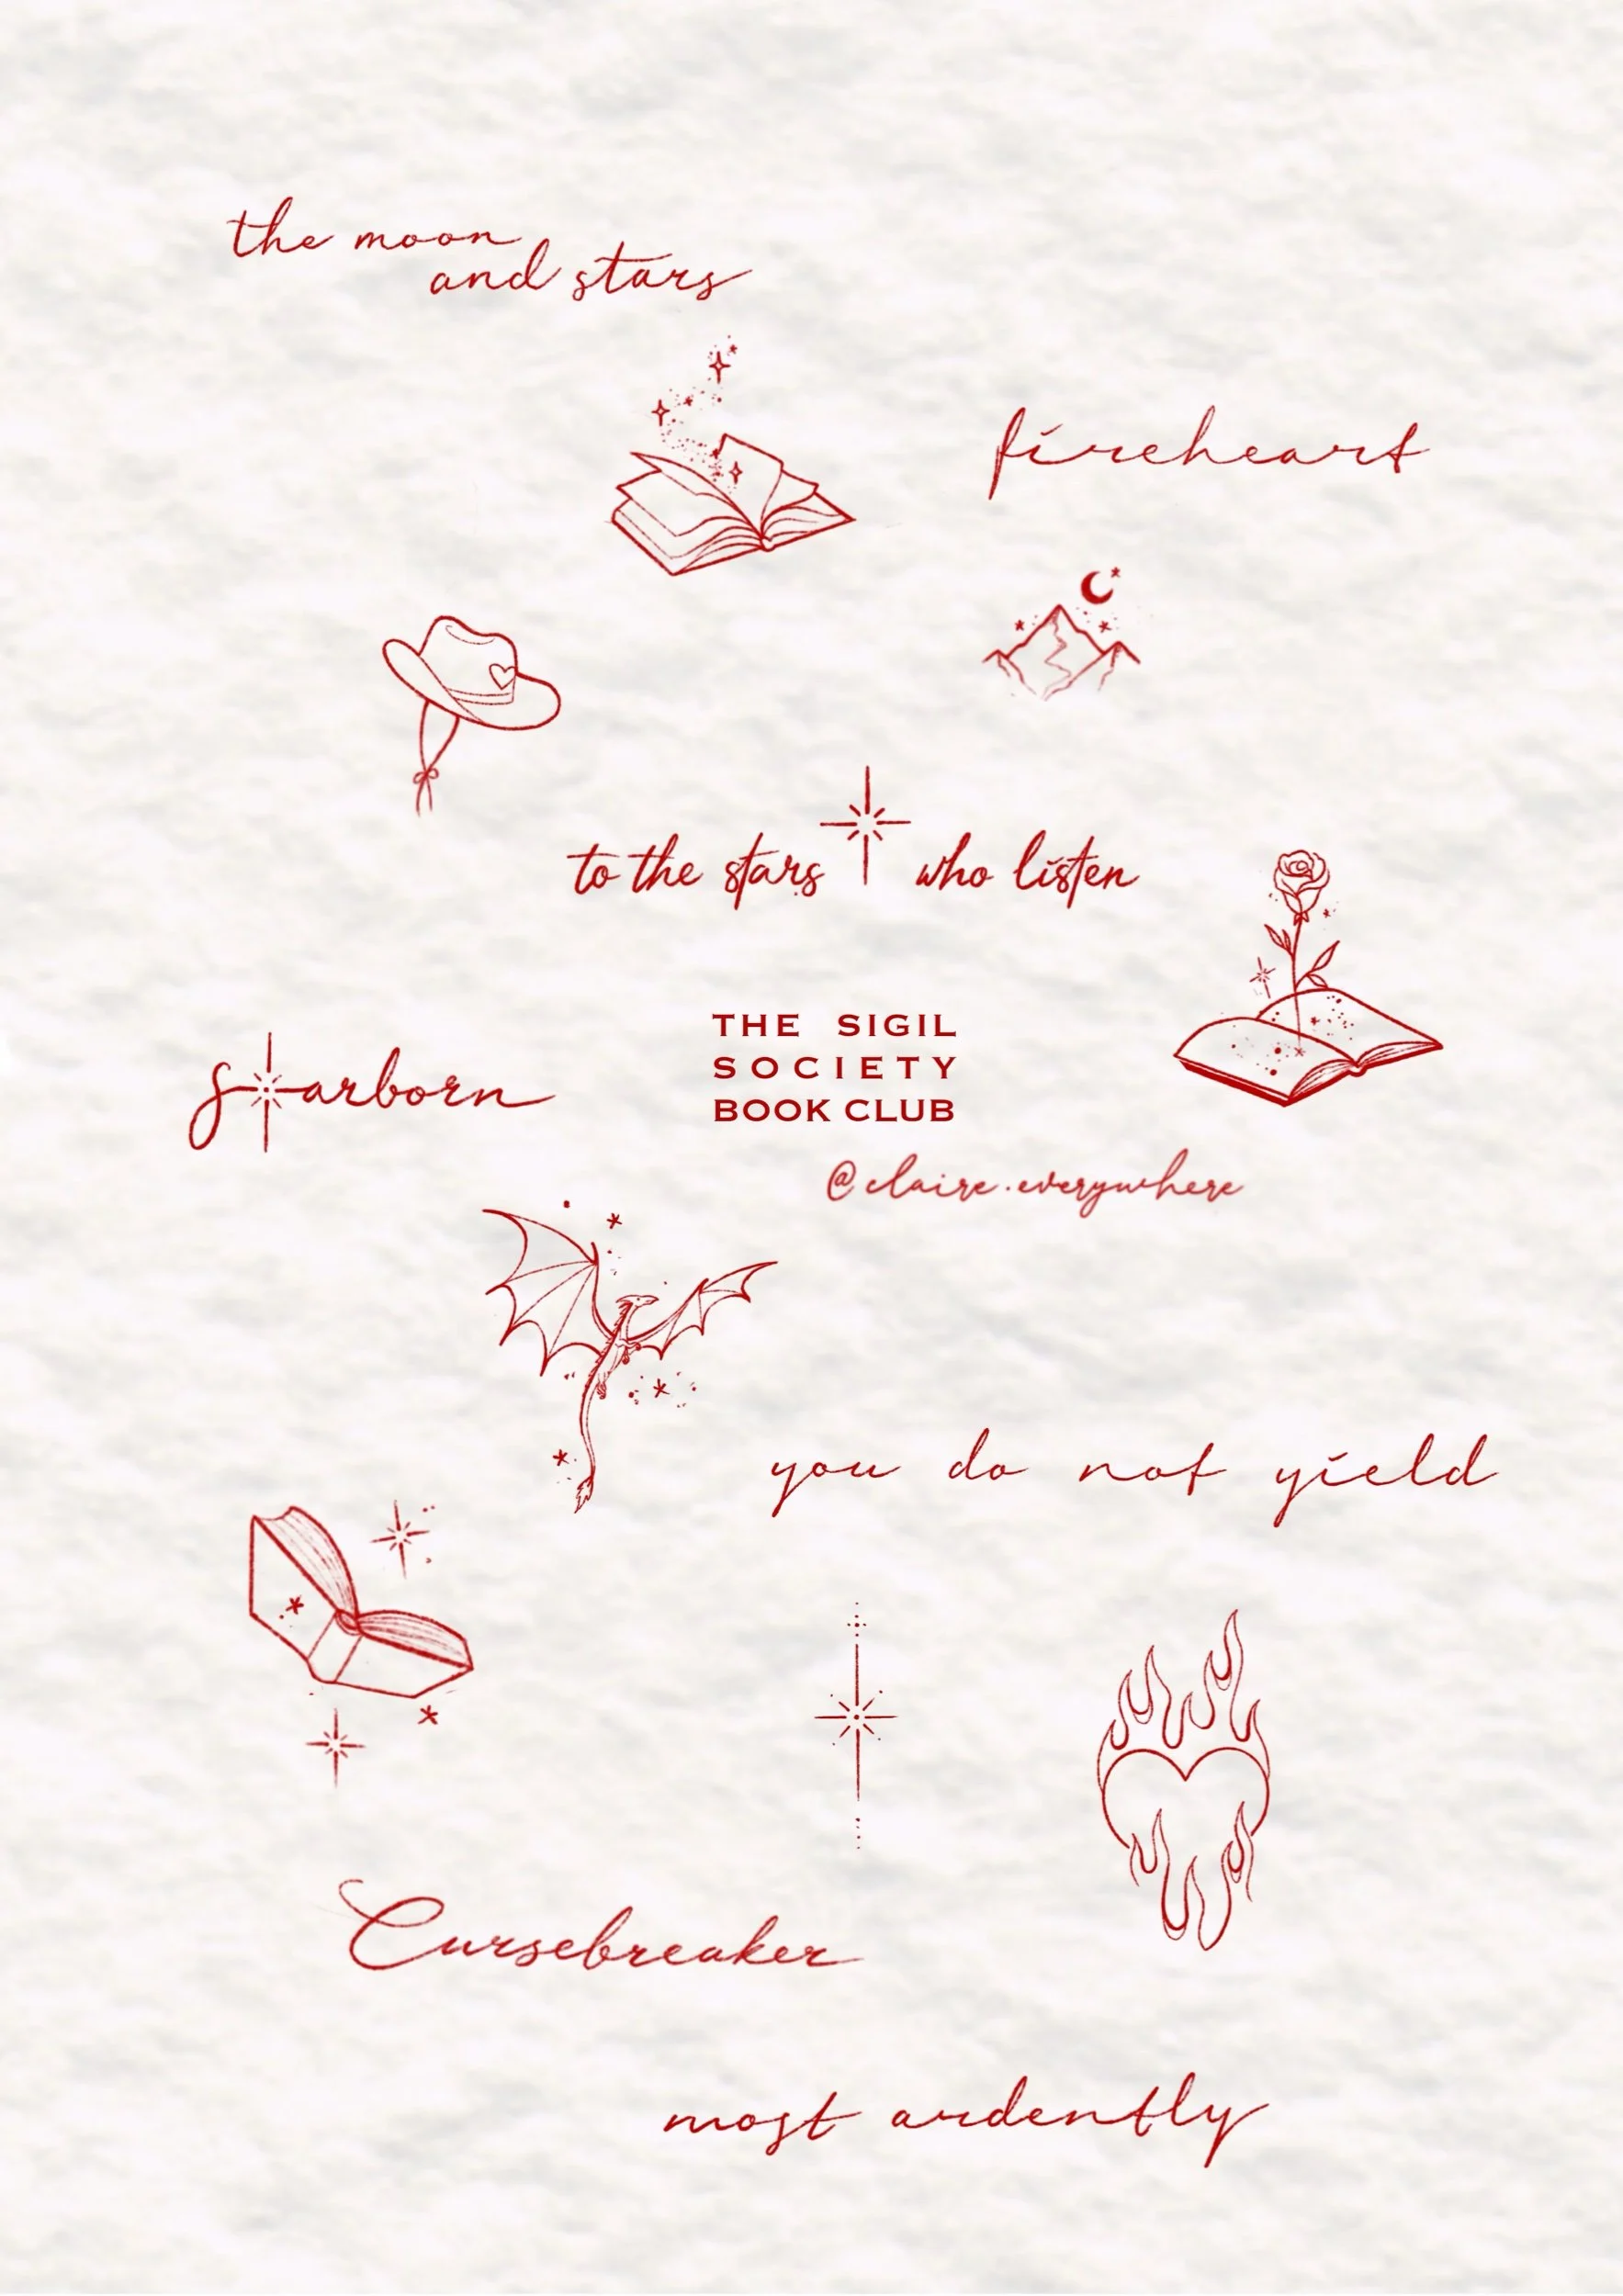 the moon
and stars
fireheart
to the stars who listen
starborn
THE SIGIL
SOCIETY
BOOK CLUB
@claire.everywhere
you do not yield
Cursebreaker
most ardently